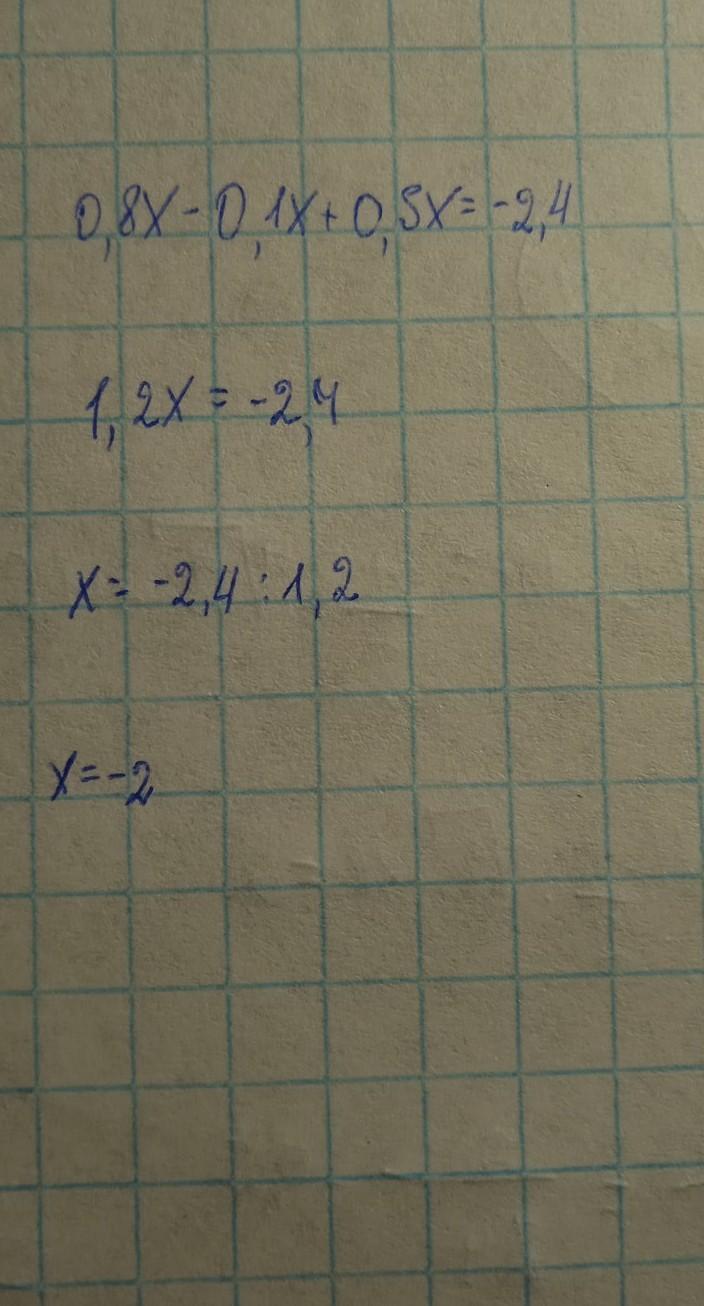 0,8x-0,1x+0,5x=-2,4
1,2x=-2,4
x=-2,4:1,2
x=-2